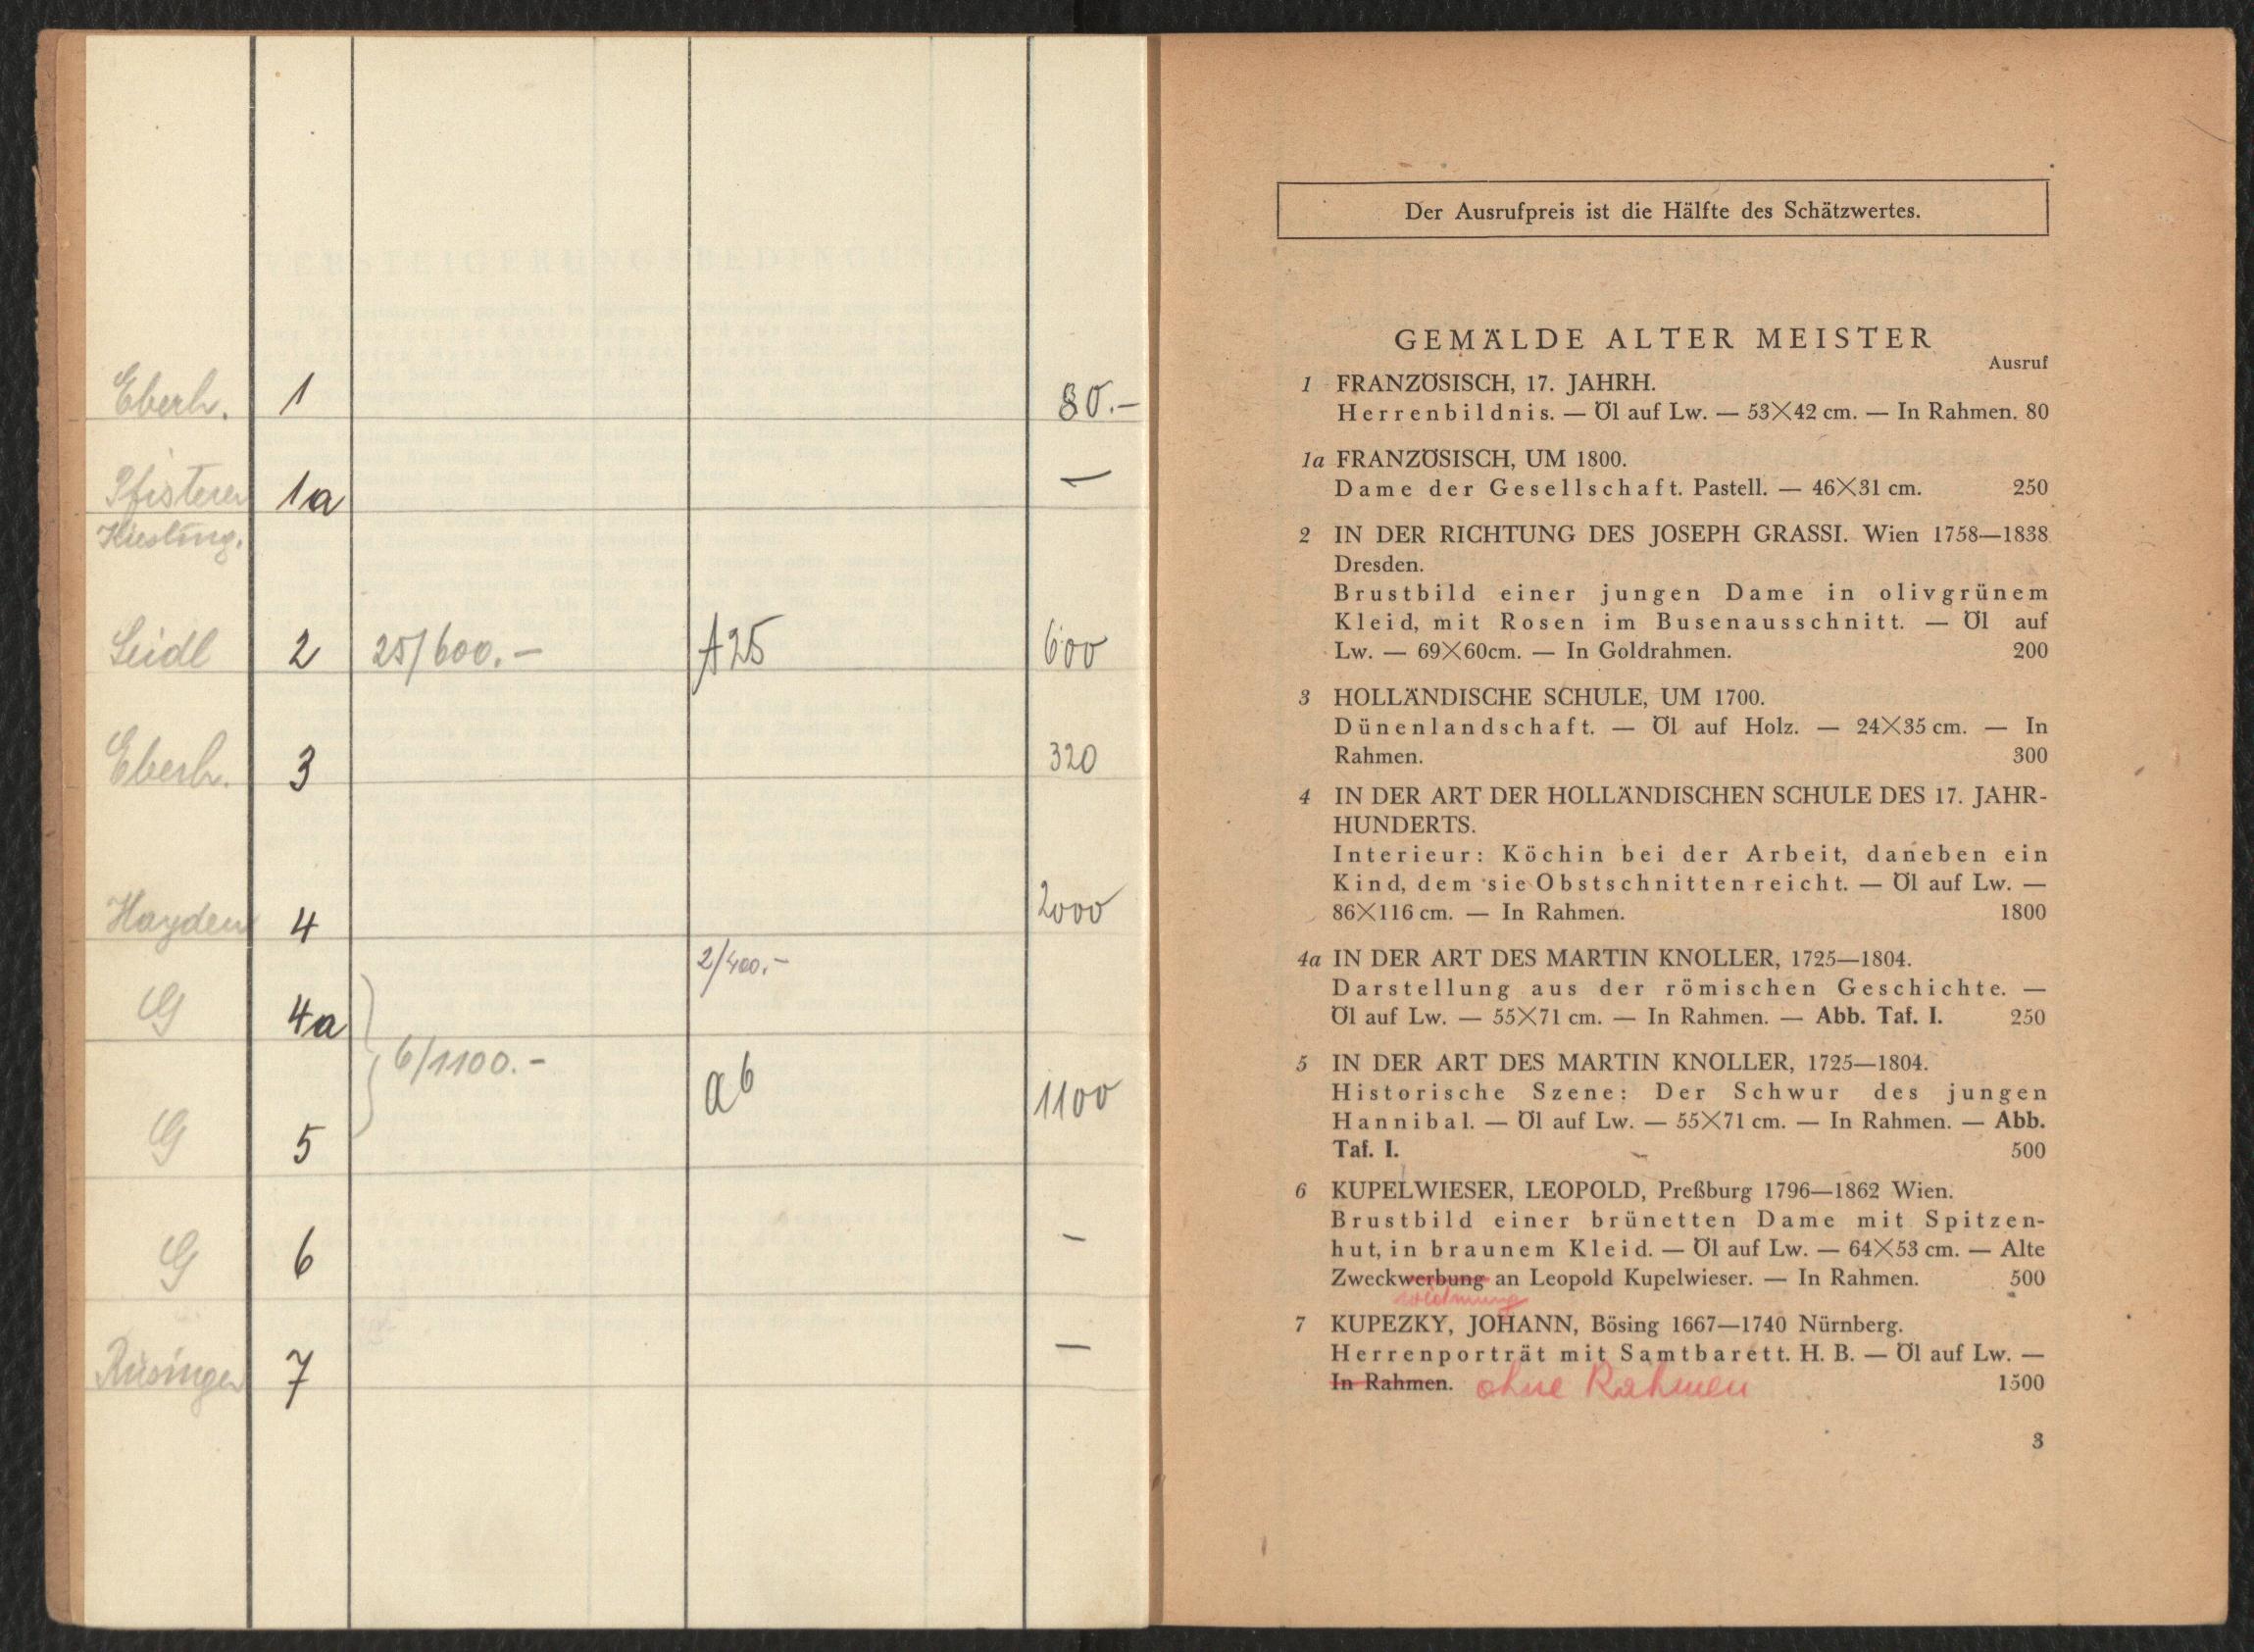 Eberh. 1 80.-
Pfisterer 1a —
Kiesling.
Seidl 2 25/600.- A25 600
Eberh. 3 320
Hayden 4 2000
2/400.-
G 4a
6/1100.- a6 1100
G 5
G 6 -
7 —
Der Ausrufpreis ist die Hälfte des Schätzwertes.
GEMÄLDE ALTER MEISTER
Ausruf
1 FRANZÖSISCH, 17. JAHRH.
Herrenbildnis. — Öl auf Lw. — 53×42 cm. — In Rahmen. 80
1a FRANZÖSISCH, UM 1800.
Dame der Gesellschaft. Pastell. — 46×31 cm. 250
2 IN DER RICHTUNG DES JOSEPH GRASSI. Wien 1758—1838
Dresden.
Brustbild einer jungen Dame in olivgrünem
Kleid, mit Rosen im Busenausschnitt. — Öl auf
Lw. — 69×60cm. — In Goldrahmen. 200
3 HOLLÄNDISCHE SCHULE, UM 1700.
Dünenlandschaft. — Öl auf Holz. — 24×35 cm. — In
Rahmen. 300
4 IN DER ART DER HOLLÄNDISCHEN SCHULE DES 17. JAHR-
HUNDERTS.
Interieur: Köchin bei der Arbeit, daneben ein
Kind, dem sie Obstschnitten reicht. — Öl auf Lw. —
86×116 cm. — In Rahmen. 1800
4a IN DER ART DES MARTIN KNOLLER, 1725—1804.
Darstellung aus der römischen Geschichte. —
Öl auf Lw. — 55×71 cm. — In Rahmen. — Abb. Taf. I. 250
5 IN DER ART DES MARTIN KNOLLER, 1725—1804.
Historische Szene: Der Schwur des jungen
Hannibal. — Öl auf Lw. — 55×71 cm. — In Rahmen. — Abb.
Taf. I. 500
6 KUPELWIESER, LEOPOLD, Preßburg 1796—1862 Wien.
Brustbild einer brünetten Dame mit Spitzen-
hut, in braunem Kleid. — Öl auf Lw. — 64×53 cm. — Alte
Zweckwerbung an Leopold Kupelwieser. — In Rahmen. 500
widmung
7 KUPEZKY, JOHANN, Bösing 1667—1740 Nürnberg.
Herrenporträt mit Samtbarett. H. B. — Öl auf Lw. —
In Rahmen. ohne Rahmen 1500
3